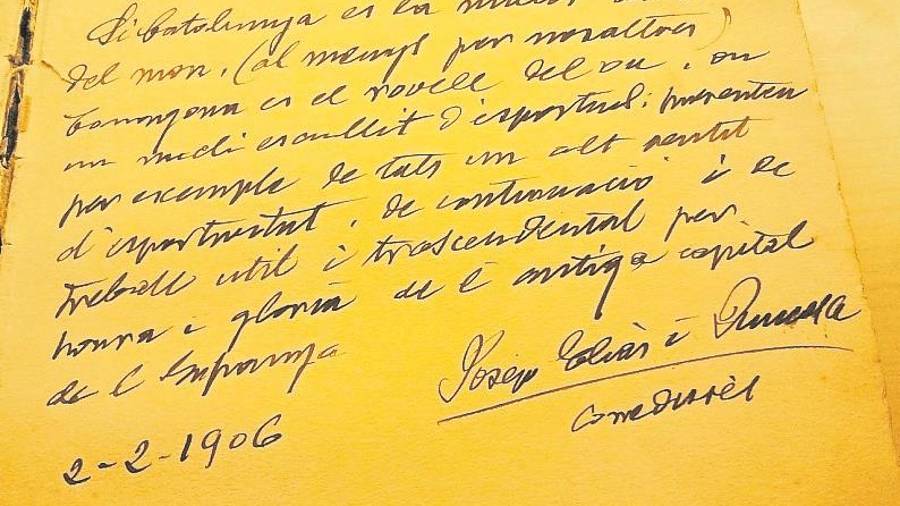 Si Catalunya es la millor
del mon, (al menys per nosaltres)
Tarragona es el rovell del ou, on
un nucli escullit d'esportius, presenten
per exemple de tats un alt sentit
d'esportivitat, de continuació i de
treball util i trascendental per
honra i gloria de l'antiga capital
de l'Espanya
Josep Elias i Juncosa
Corredisses
2-2-1906